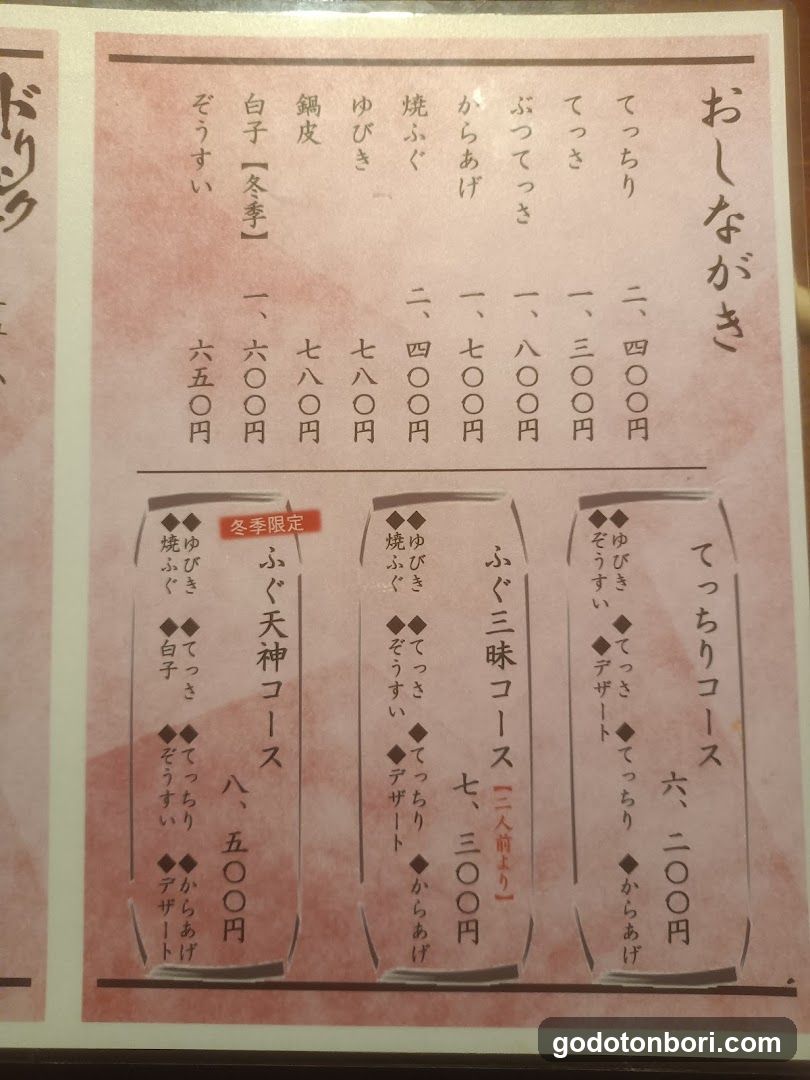 おしながき
てっちり 二、四〇〇円
てっさ 一、三〇〇円
ぶつてっさ 一、八〇〇円
からあげ 一、七〇〇円
焼ふぐ 二、四〇〇円
ゆびき 七八〇円
鍋皮 七八〇円
白子【冬季】 一、六〇〇円
ぞうすい 六五〇円
てっちりコース
六、二〇〇円
◆ゆびき ◆てっさ ◆てっちり ◆からあげ
◆ぞうすい ◆デザート
ふぐ三昧コース
【二人前より】
七、三〇〇円
◆ゆびき ◆てっさ ◆てっちり ◆からあげ
◆焼ふぐ ◆ぞうすい ◆デザート
冬季限定
ふぐ天神コース
八、五〇〇円
◆ゆびき ◆てっさ ◆てっちり ◆からあげ
◆焼ふぐ ◆白子 ◆ぞうすい ◆デザート
ドリンク
godotonbori.com